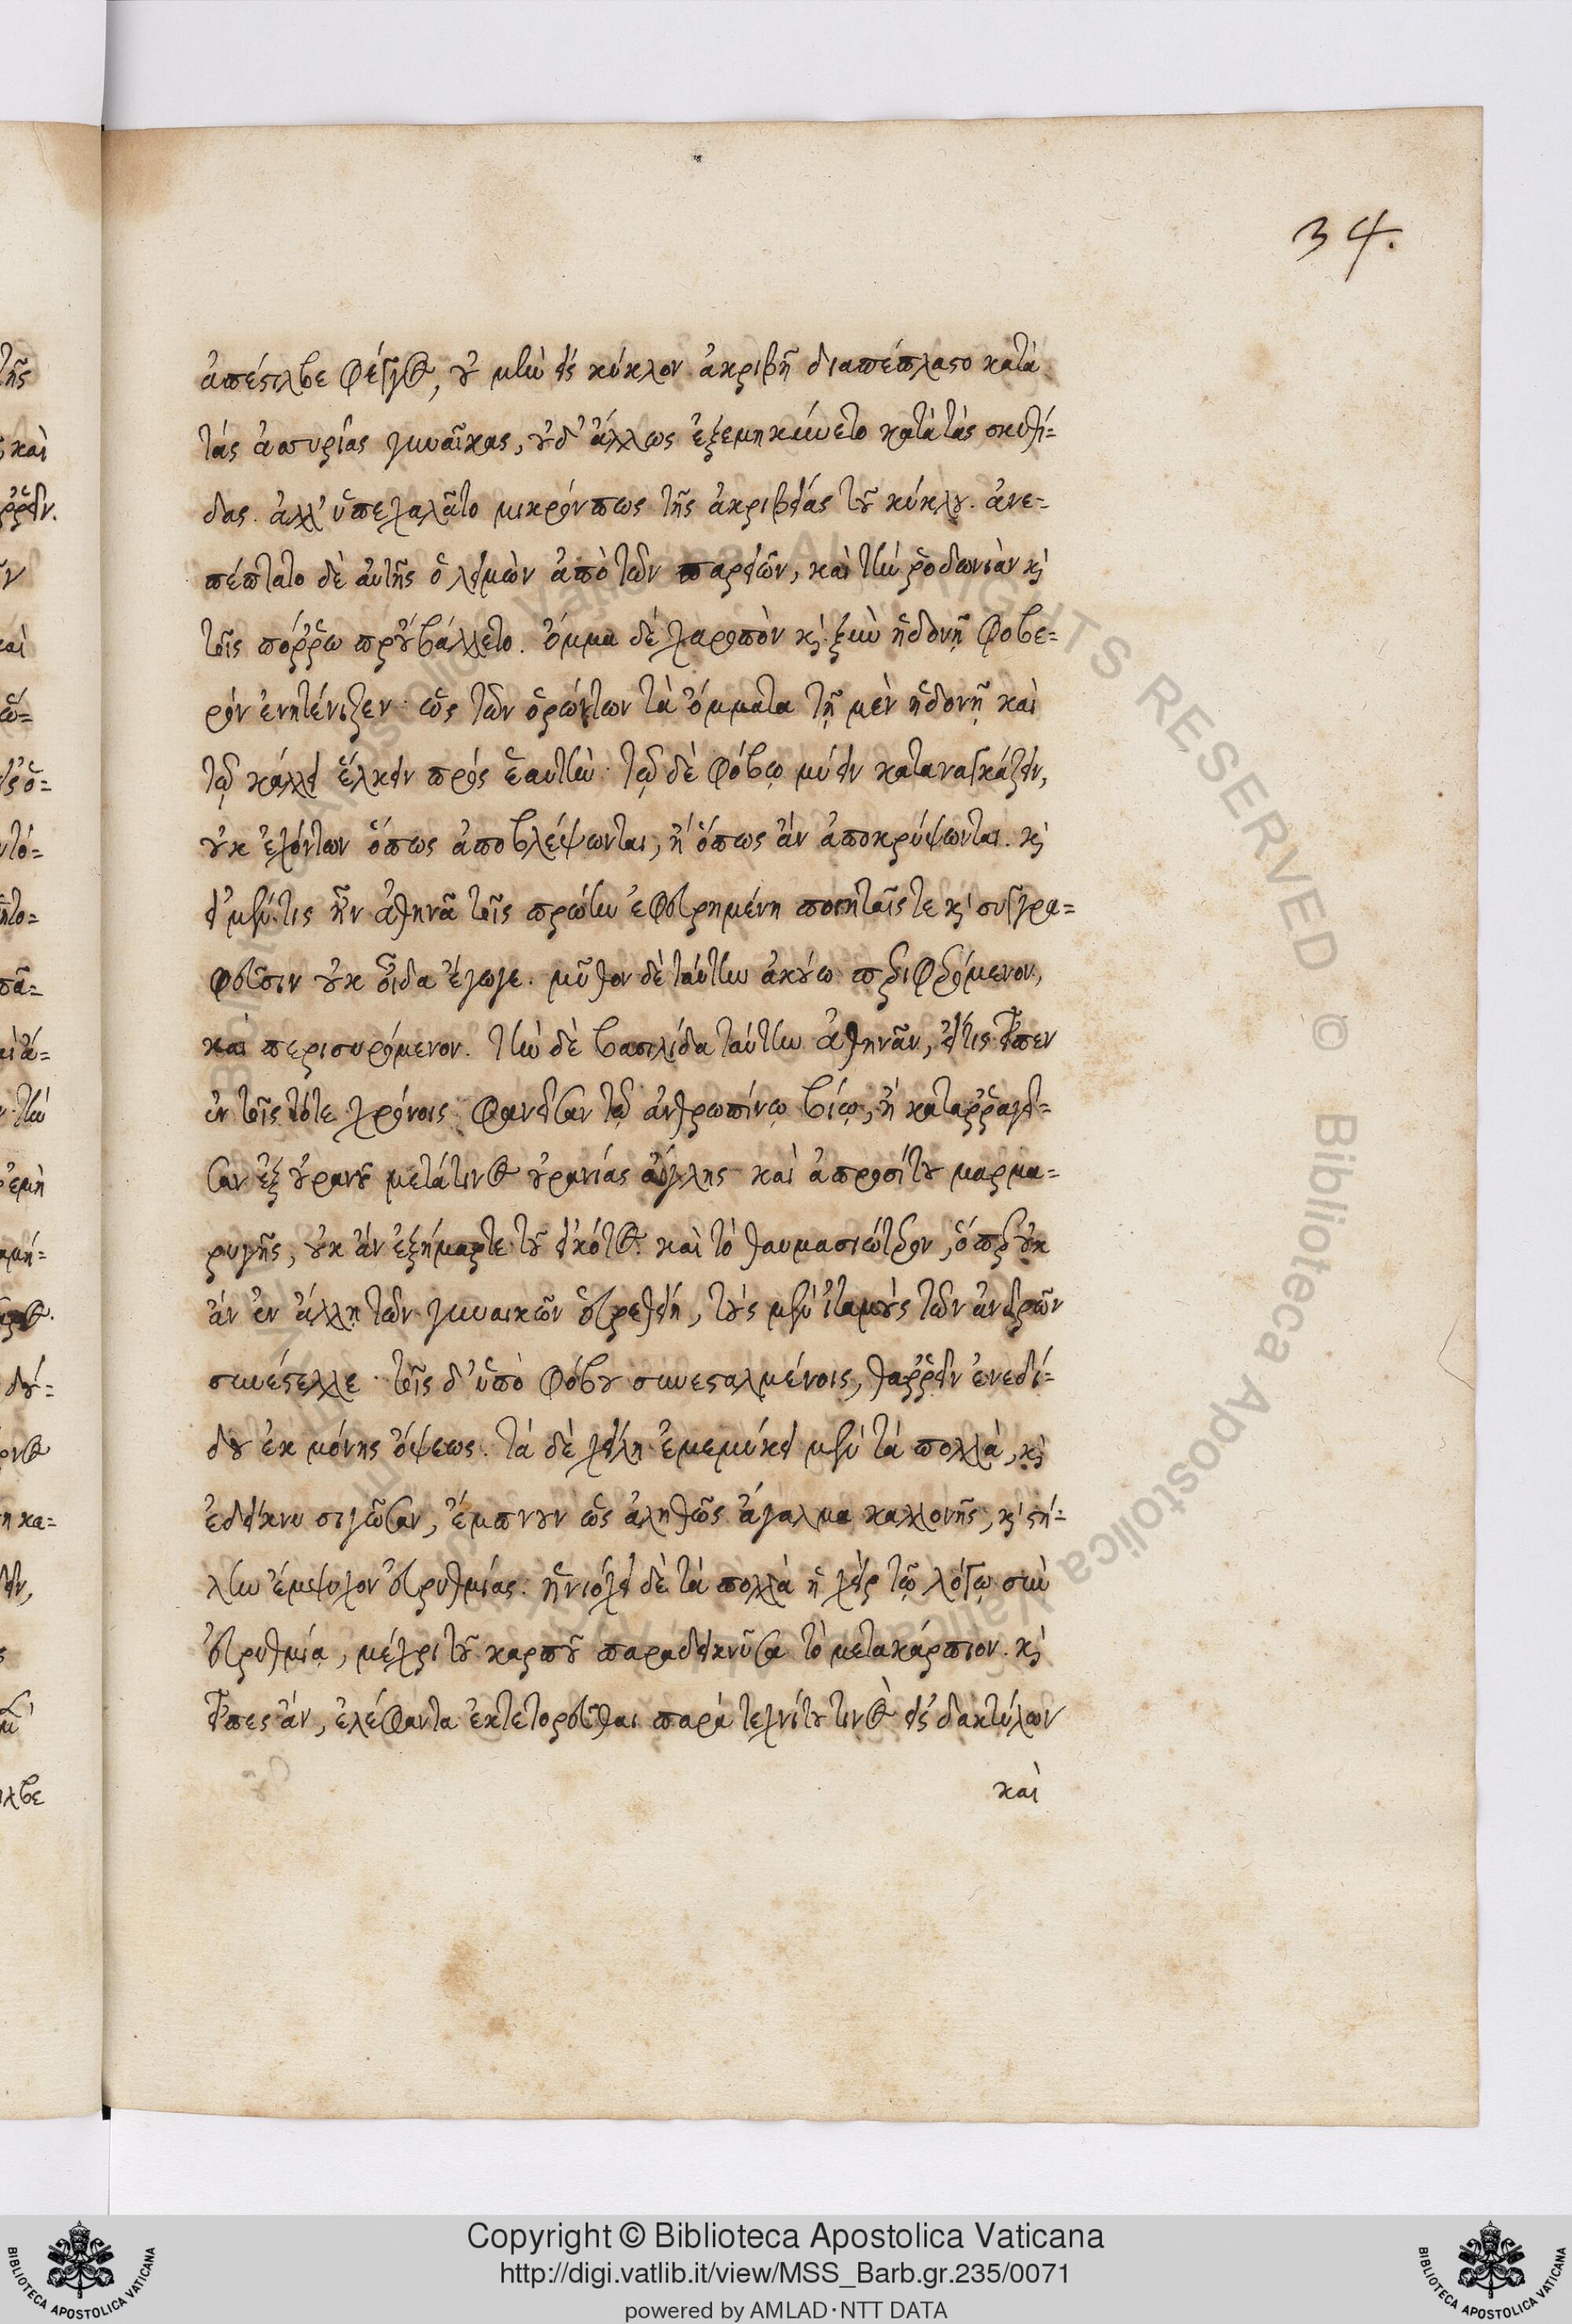 34.
ἀπέστιλβε φέγγος, οὐ μὴν εἰς κύκλον ἀκριβῆ διαπέπλαστο κατὰ
τὰς ἀσσυρίας γυναῖκας, οὐδ' ἄλλως ἐξεμηκύνετο κατὰ τὰς σκυθί=
δας. ἀλλ' ὑπεχαλᾶτο μικρόν πως τῆς ἀκριβείας τοῦ κύκλου. ἀνε=
πέπτατο δὲ αὐτῆς ὁ λειμὼν ἀπὸ τῶν παρειῶν, καὶ τὴν ῥοδωνιὰν καὶ
τοῖς πόῤῥω προὐβάλλετο. ὄμμα δὲ χαροπὸν καὶ ξὺν ἡδονῇ φοβε=
ρὸν ἐνητένιζεν· ὡς τῶν ὁρώντων τὰ ὄμματα τῇ μὲν ἡδονῇ καὶ
τῷ κάλλει ἕλκειν πρὸς ἑαυτὴν· τῷ δὲ φόβῳ μύειν καταναγκάζειν,
οὐκ ἐχόντων ὅπως ἀποβλέψωνται, ἢ ὅπως ἂν ἀποκρύψωνται. καὶ
εἰ μέν τις ἦν ἀθηνᾶ τοῖς πρώτην ἐφευρημένη ποιηταῖς τε καὶ συγγρα=
φεῦσιν οὐκ οἶδα ἔγωγε. μῦθον δὲ ταύτην ἀκούω περιφερόμενον,
καὶ περισυρόμενον. τὴν δὲ βασιλίδα ταύτην ἀθηνᾶν, εἴ τις εἶπεν
ἐν τοῖς τότε χρόνοις φανεῖσαν τῷ ἀνθρωπίνῳ βίῳ, ἢ καταῤῥαγεῖ=
σαν ἐξ οὐρανοῦ μετά τινος οὐρανίας αἴγλης καὶ ἀπροσίτου μαρμα=
ρυγῆς, οὐκ ἂν ἐξήμαρτε τοῦ εἰκότος. καὶ τὸ θαυμασιώτερον, ὅπερ οὐκ
ἂν ἐν ἄλλῃ τῶν γυναικῶν εὑρεθείη, τοὺς μὲν ἰταμοὺς τῶν ἀνδρῶν
συνέστελλε· τοῖς δ' ὑπὸ φόβου συνεσταλμένοις, θαῤῥεῖν ἐνεδί=
δου ἐκ μόνης ὄψεως. τὰ δὲ χείλη ἐμεμύκει μὲν τὰ πολλὰ, καὶ
ἐδείκνυ σιγῶσαν, ἔμπνουν ὡς ἀληθῶς ἄγαλμα καλλονῆς, καὶ στή=
λην ἔμψυχον εὐρυθμίας. ἡνιόχει δὲ τὰ πολλὰ ἡ χεὶρ τῷ λόγῳ σὺν
εὐρυθμίᾳ, μέχρι τοῦ καρποῦ παραδεικνῦσα τὸ μετακάρπιον. καὶ
εἶπες ἂν, ἐλέφαντα ἐκτετορεῦσθαι παρὰ τεχνίτου τινὸς εἰς δακτύλων
καὶ
Copyright © Biblioteca Apostolica Vaticana
http://digi.vatlib.it/view/MSS_Barb.gr.235/0071
powered by AMLAD·NTT DATA